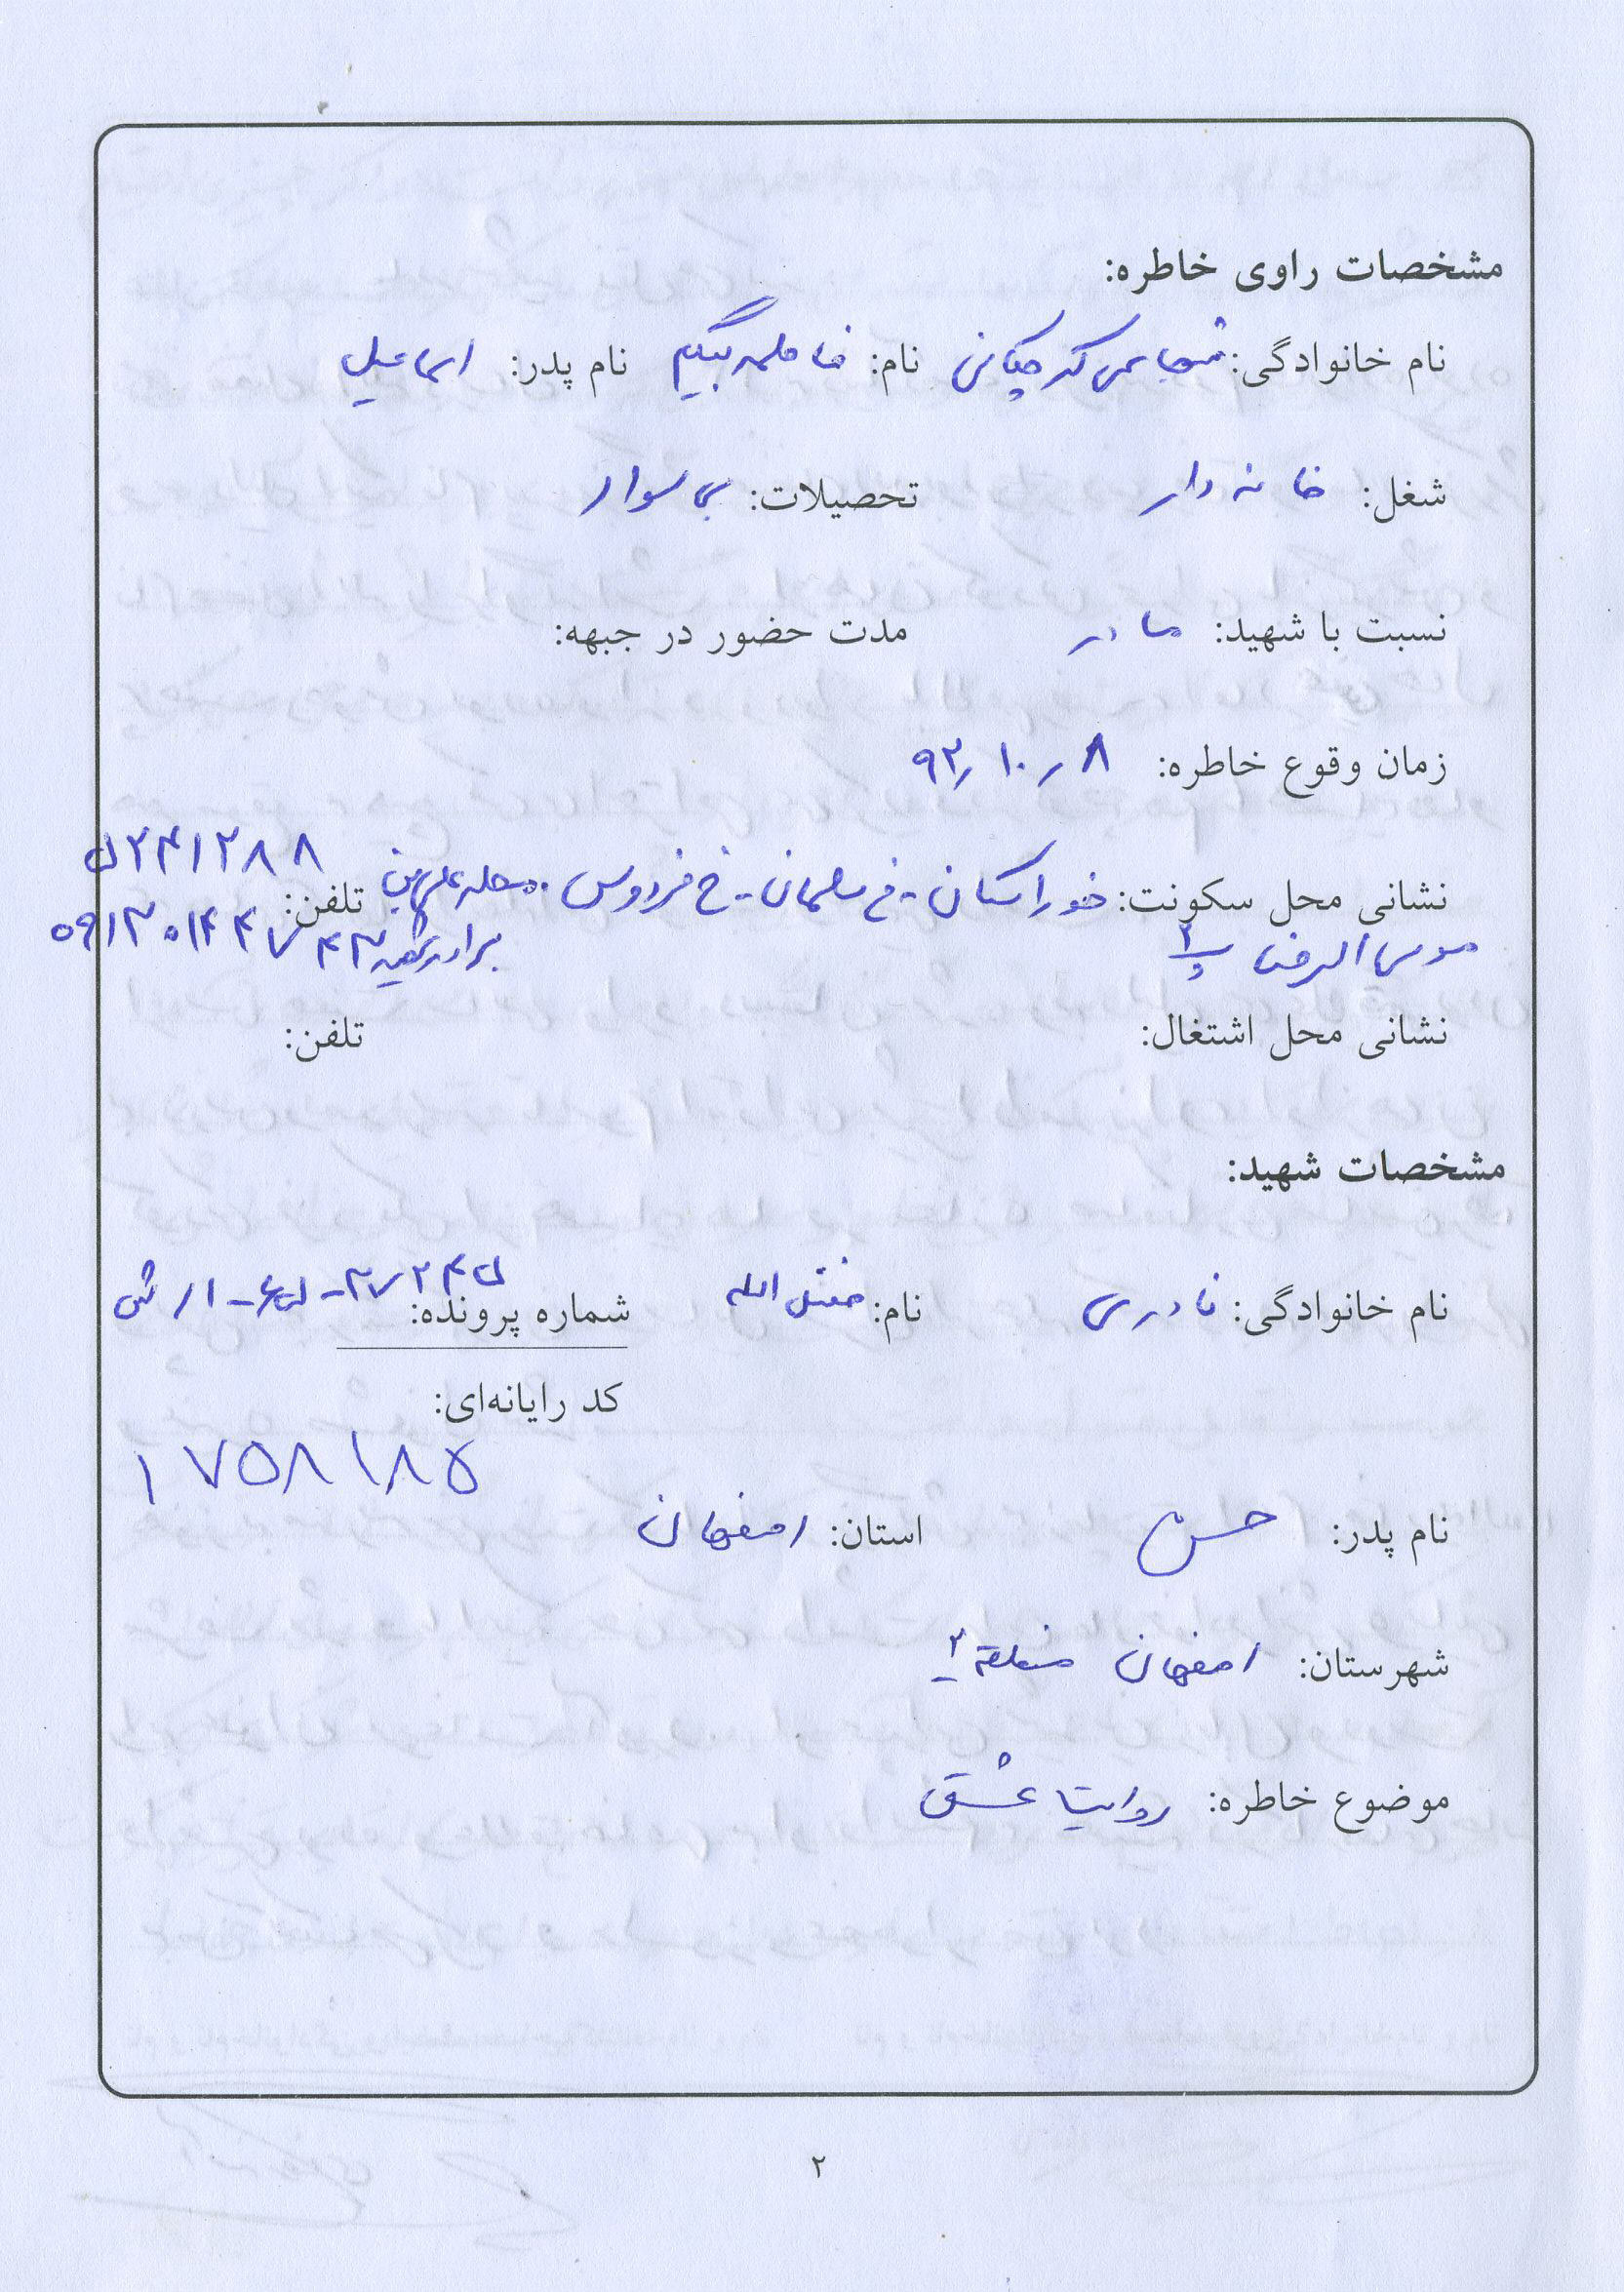 مشخصات راوی خاطره:
نام خانوادگی: شجاعی کرچکانی نام: فاطمه بیگم نام پدر: اسماعیل
شغل: خانه دار تحصیلات: بی سواد
نسبت با شهید: مادر مدت حضور در جبهه:
زمان وقوع خاطره: ۹۳٫۱۰٫۸
نشانی محل سکونت: خوراسکان - خ سلمان - خ فردوس - محله علی بن تلفن:
موسی الرضا برادر شهید
نشانی محل اشتغال: تلفن:
مشخصات شهید:
نام خانوادگی: قادری نام: فضل الله شماره پرونده:
کد رایانه‌ای:
۱۷۵۸۱۸۵
نام پدر: حسن استان: اصفهان
شهرستان: اصفهان منطقه ۲
موضوع خاطره: روایت عشق
۲